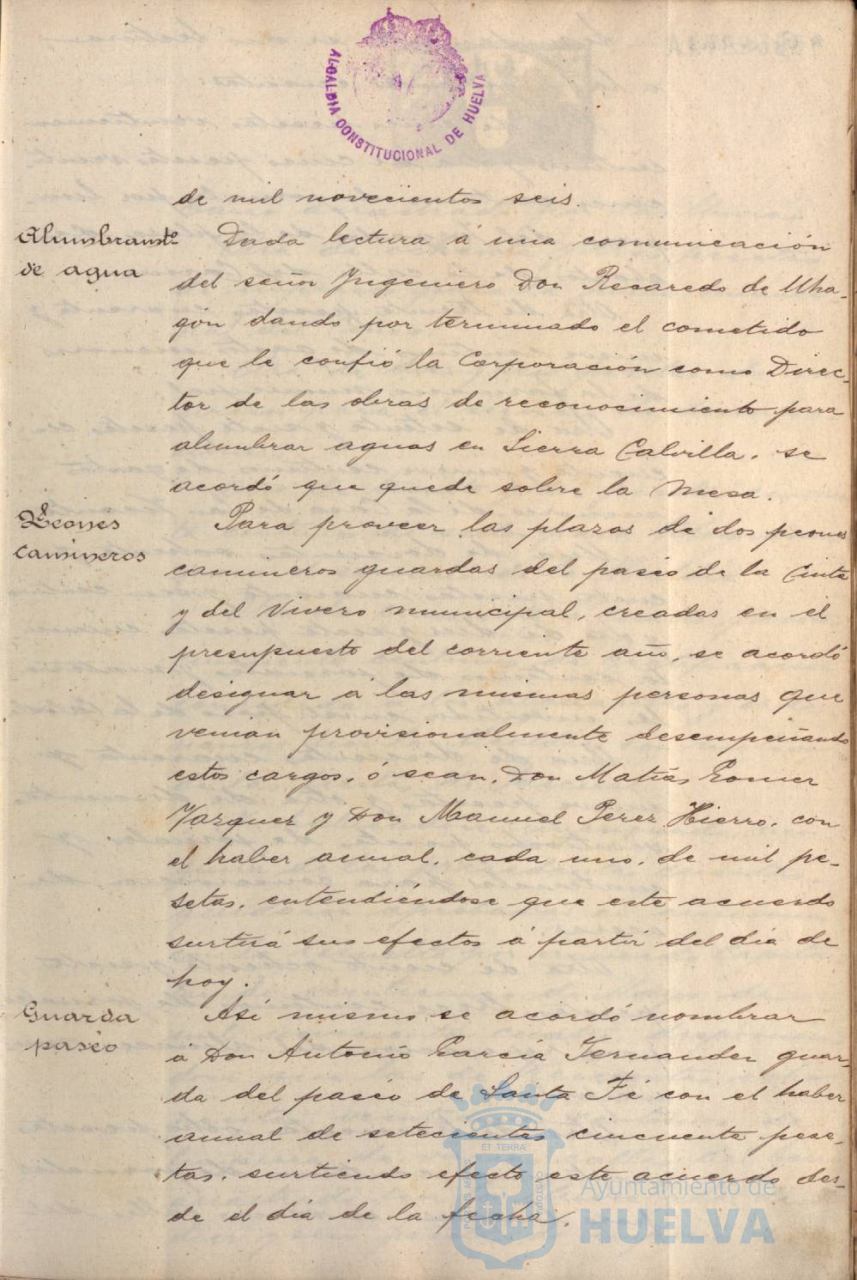 ALCALDIA CONSTITUCIONAL DE HUELVA
de mil novecientos seis.
Alumbramto
de agua
Dada lectura á una comunicación
del señor Yngeniero Don Recaredo de Uha-
gón dando por terminado el cometido
que le confió la Corporación como Direc-
tor de las obras de reconocimiento para
alumbrar aguas en Sierra Calvilla, se
acordó que quede sobre la mesa.
Peones
camineros
Para proveer las plazas de dos peones
camineros guardas del paseo de la Cinta
y del Vivero municipal, creadas en el
presupuesto del corriente año, se acordó
designar á las mismas personas que
venian provisionalmente desempeñando
estos cargos, ó sean, Don Matías Gomez
Vazquez y Don Manuel Perez Hierro, con
el haber anual, cada uno, de mil pe-
setas, entendiéndose que este acuerdo
surtirá sus efectos á partir del dia de
hoy.
Guarda
paseo
Así mismo se acordó nombrar
á Don Antonio García Fernandez guar-
da del paseo de Santa Fé con el haber
anual de setecientas cincuenta pese-
tas, surtiendo efecto este acuerdo des-
de el dia de la fecha.
Ayuntamiento de
HUELVA